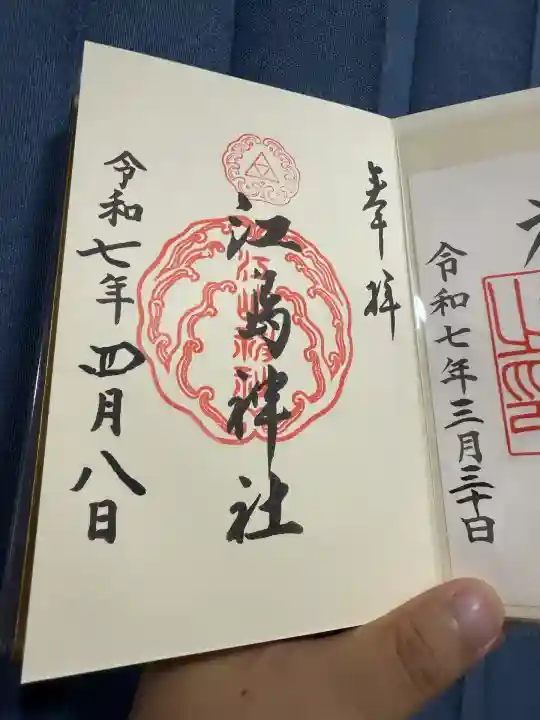 令和七年三月三十日
奉拝
江島神社
令和七年四月八日